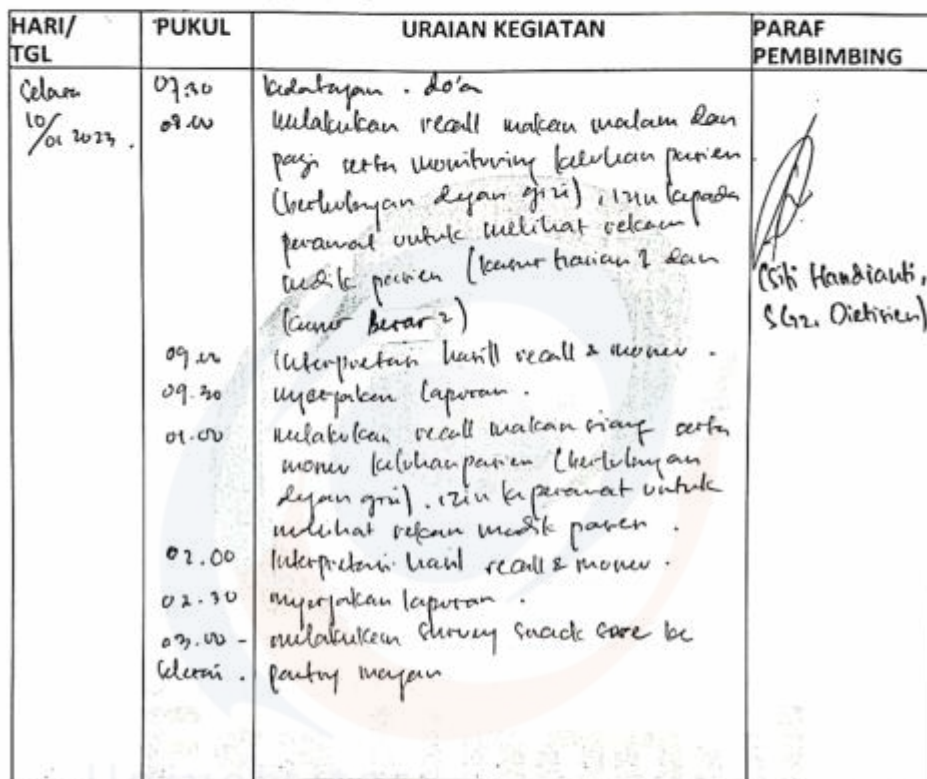 HARI/ TGL PUKUL URAIAN KEGIATAN PARAF PEMBIMBING
Selasa 10/01 2023. 07.30 kedatangan. do'a
08.00 melakukan recall makan malam dan
pagi serta monitoring keluhan pasien
(berhubungan dengan gizi), izin kepada
perawat untuk melihat rekam
medik pasien (kamar harian 2 dan
kamar Besar 2)
(Siti Handianti, SGz, Dietisien)
09.00 Interpretasi hasil recall & monev.
09.30 mengerjakan laporan.
01.00 melakukan recall makan siang serta
monev keluhan pasien (berhubungan
dengan gizi). izin ke perawat untuk
melihat rekam medik pasien.
02.00 Interpretasi hasil recall & monev.
02.30 mengerjakan laporan.
03.00 - melakukan survey snack sore ke
Selesai. pantry